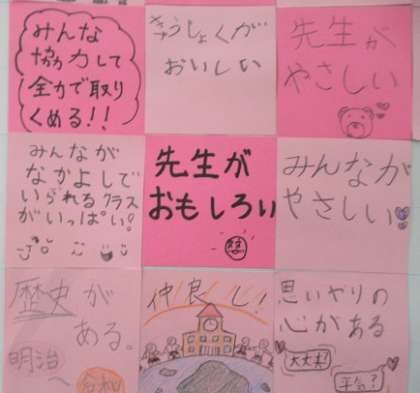 みんな
協力して
全力で取り
くめる!!
きゅうしょくが
おいしい
先生が
やさしい
みんなが
なかよしで
いられるクラス
がいっぱい!
先生が
おもしろい
みんなが
やさしい
歴史が
ある。
明治
令和
仲良し!
思いやりの
心がある
大丈夫!
平気?